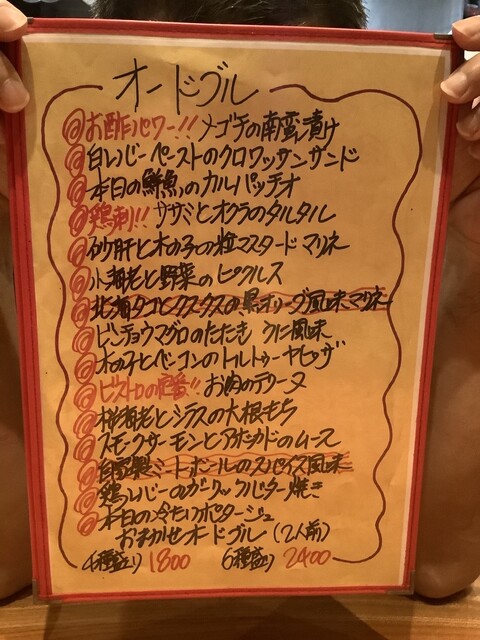 オードブル
お酢パワー!! メゴチの南蛮漬け
白レバーペーストのクロワッサンサンド
本日の鮮魚のカルパッチオ
鶏刺!! ササミとオクラのタルタル
砂肝と木の子の粒マスタードマリネ
小海老と野菜のピクルス
北海タコとクスクスの黒オリーブ風味マリネ
ビンチョウマグロのたたき うに風味
木の子とベーコンのトルトゥーヤピッザ
ビストロの定番!! お肉のテリーヌ
桜海老とシラスの大根もち
スモークサーモンとアボカドのムース
自家製ミートボールのスパイス風味
鶏レバーのガーリックバター焼き
本日の冷たいポタージュ
おまかせオードブル (2人前)
4種盛り 1800 6種盛り 2400